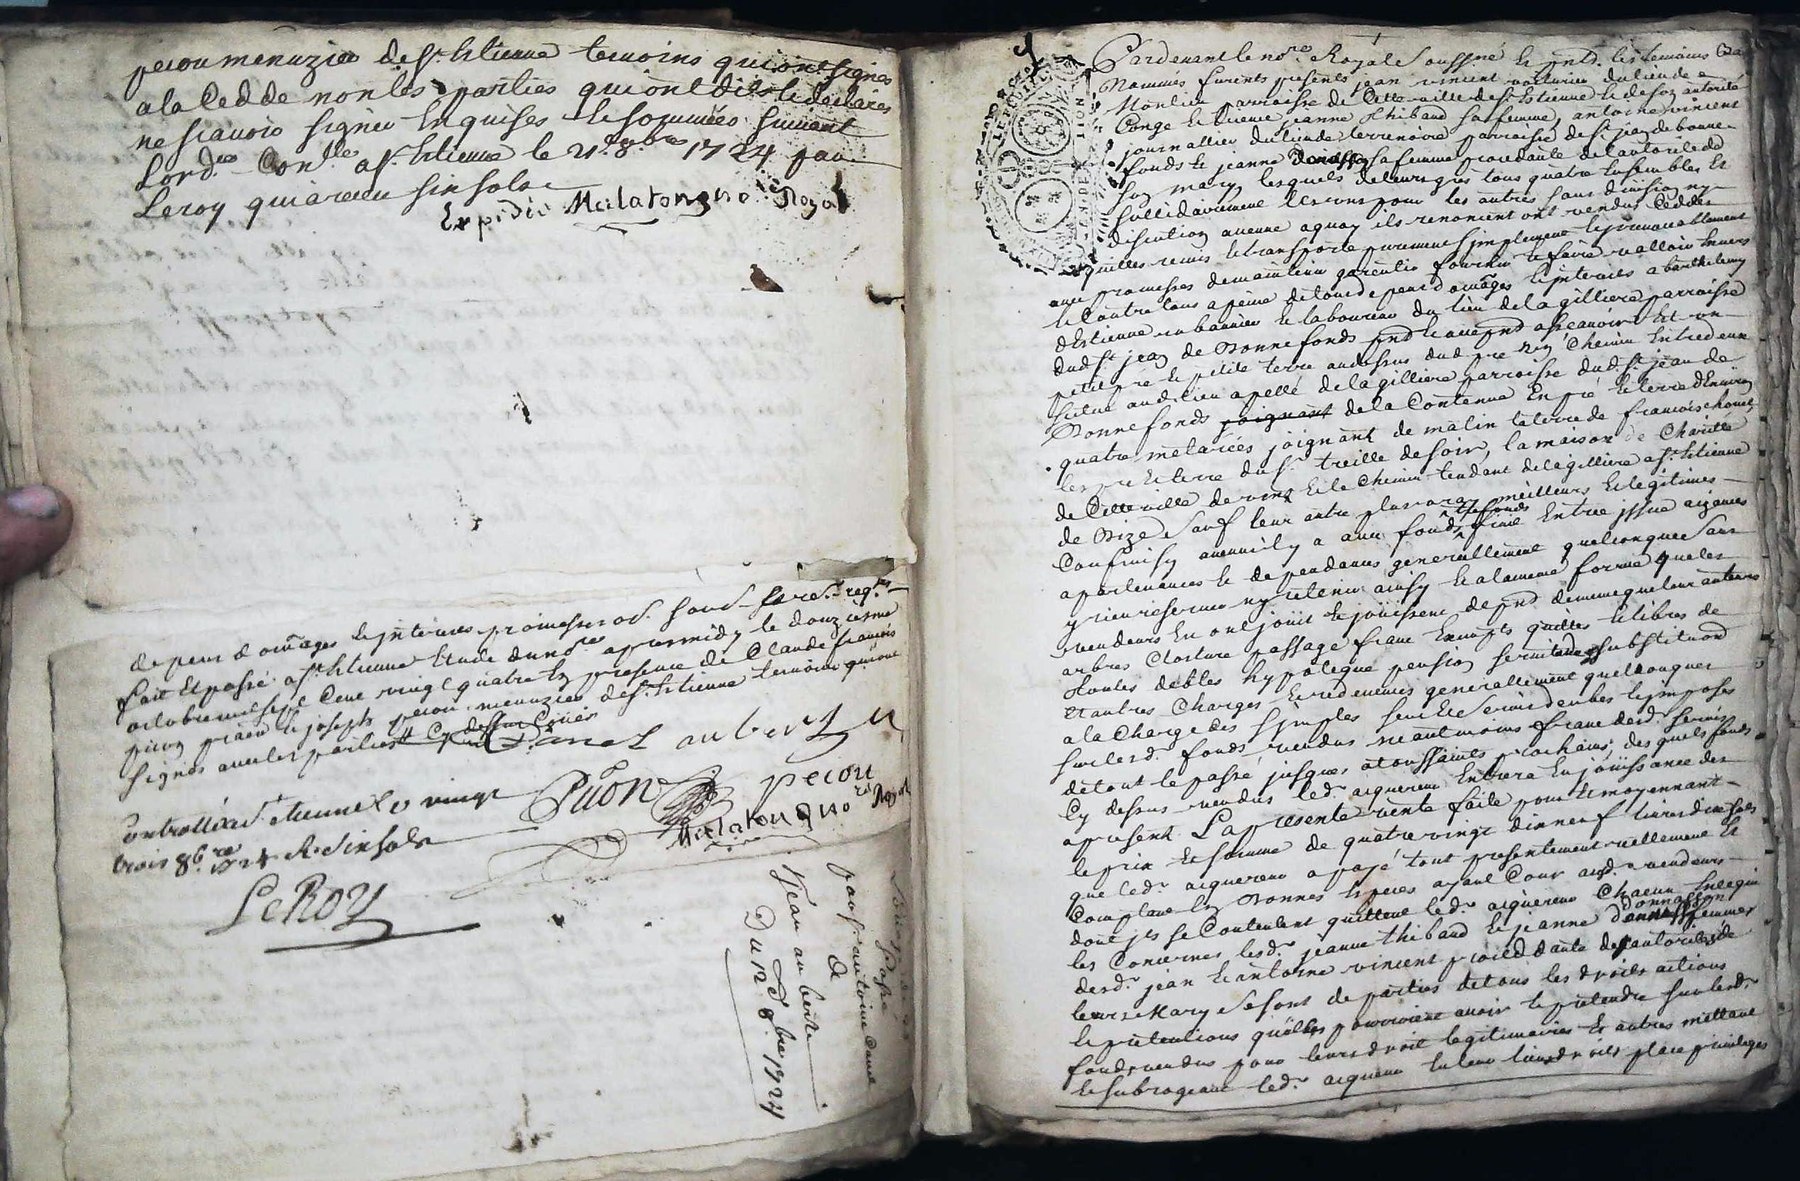 pecou menuzier de St Estienne temoins qui ont signés
a la Ced de non les parties qui ont dits et declairés
ne scavoir signer Enquises et sommées suivant
Lord. Con.le a St Estienne le 21e 8bre 1724 par
Leroy qui a receu six sols
Expédié Malatongno Royal
de peur domages et jnterets promesses ob. soub. re req.tes
fait et passé a St Estienne Etude du no.re apres midy le douzieme
octobre mil sept cent vingt quatre En presence de Claude francois
piron et joseph pecou menuzier de St Estienne temoins qui ont
signés avec les parties
aubert
Piron
pecou
Malatongno Royal
Controllé a St Etienne le vingt
trois 8bre 1724 R. six sols
LeRoy
passé
par Sr antoine
a
Jean auberte
Du 12e 8bre 1724
Pardevant le no.re Royal Soussné et pnts les temoins bas
Nommés furents presents jean vincent voiturier du lieu de
Monlieu parroisse de Cette ville de St Estienne et de son autorité
Congé et licence jeanne Thibaud sa femme, antoine vincent
journallier du lieu de terrenoire parroisse de St jean de bonne
fonds et jeanne Donasson sa femme procedante de l'autorité dud
son mary, lesquels de leurs grés tous quatre Ensembles et
sollidairement les uns pour les autres sans division ny
discution aucune a quoy ils renoncent ont vendus Ceddés
quittés remis et transporté purement simplement et jrrevocablement
avec promesses de maintenir garentir fournir et faire valloir Envers
et Contre tous a peine de tous depens domages et jnterets a barthelemy
d'Estienne cabannier et laboureur du lieu de la gilliere parroisse
dud St jean de Bonnefonds pnt et accepnt ascavoir Est un
petit pré et petite terre au dessus dud pré un Chemin Entredeux
situé au dit lieu apellé de la gilliere parroisse dud St jean de
Bonnefonds joignant de la Contenue En pré et terre d'Environ
quatre metairées joignant de matin la terre de francois chomel
les pré et terre du Sr treille de soir, la maison de Charitté
de Cette ville de vent et le Chemin tendant de la gilliere a St Estienne
de Bize Sauf leur autre plus vray meilleurs et legitimes
Confinisy aucuns il y a avec fonds tresfonds Entrée jssue aizances
apartenances et dependances generallement quelconques sans
y rien reserver ny retenir ainsy et a la meme forme que les
vendeurs En ont joüit et joüissent de pnt de meme que leur auteurs
arbres Closture passage franc Exempts quittes et libres de
toutes debtes hypoteque pension servitude substitution
Et autres Charges et redevances generallement quelconques
a la Charge des simples Cens et Servis deubes et jmposés
sur lesd. fonds vendus neantmoins franc desd. servis
de tout le passé jusques a toussaints prochains, des quels fonds
Cy dessus vendus led. aiquereur Entrera En joüissance des
apresent La presente vente faite pour et moyennant
le prix et somme de quatre vingt dix neuf livres dix sols
que led. aiquereur a payé tout presentement reellement et
Comptant En bonnes Especes ayant Cour ausd. vendeurs
dont jls se Contentent quittent led. aiquereur Chacun En ce qui
les Concernes, lesd. jeanne thibaud et jeanne donnasson femmes
desd. jean et antoine vincent procedante de l'autorité de
leurs Mary se sont departies de tous les droits actions
et pretentions quelles pourroient avoir et pretendre sur lesd.
fonds vendus pour leurs droit legitimaires et autres mettant
et subrogeant led. aiquereur En leur lieux droits place privileges